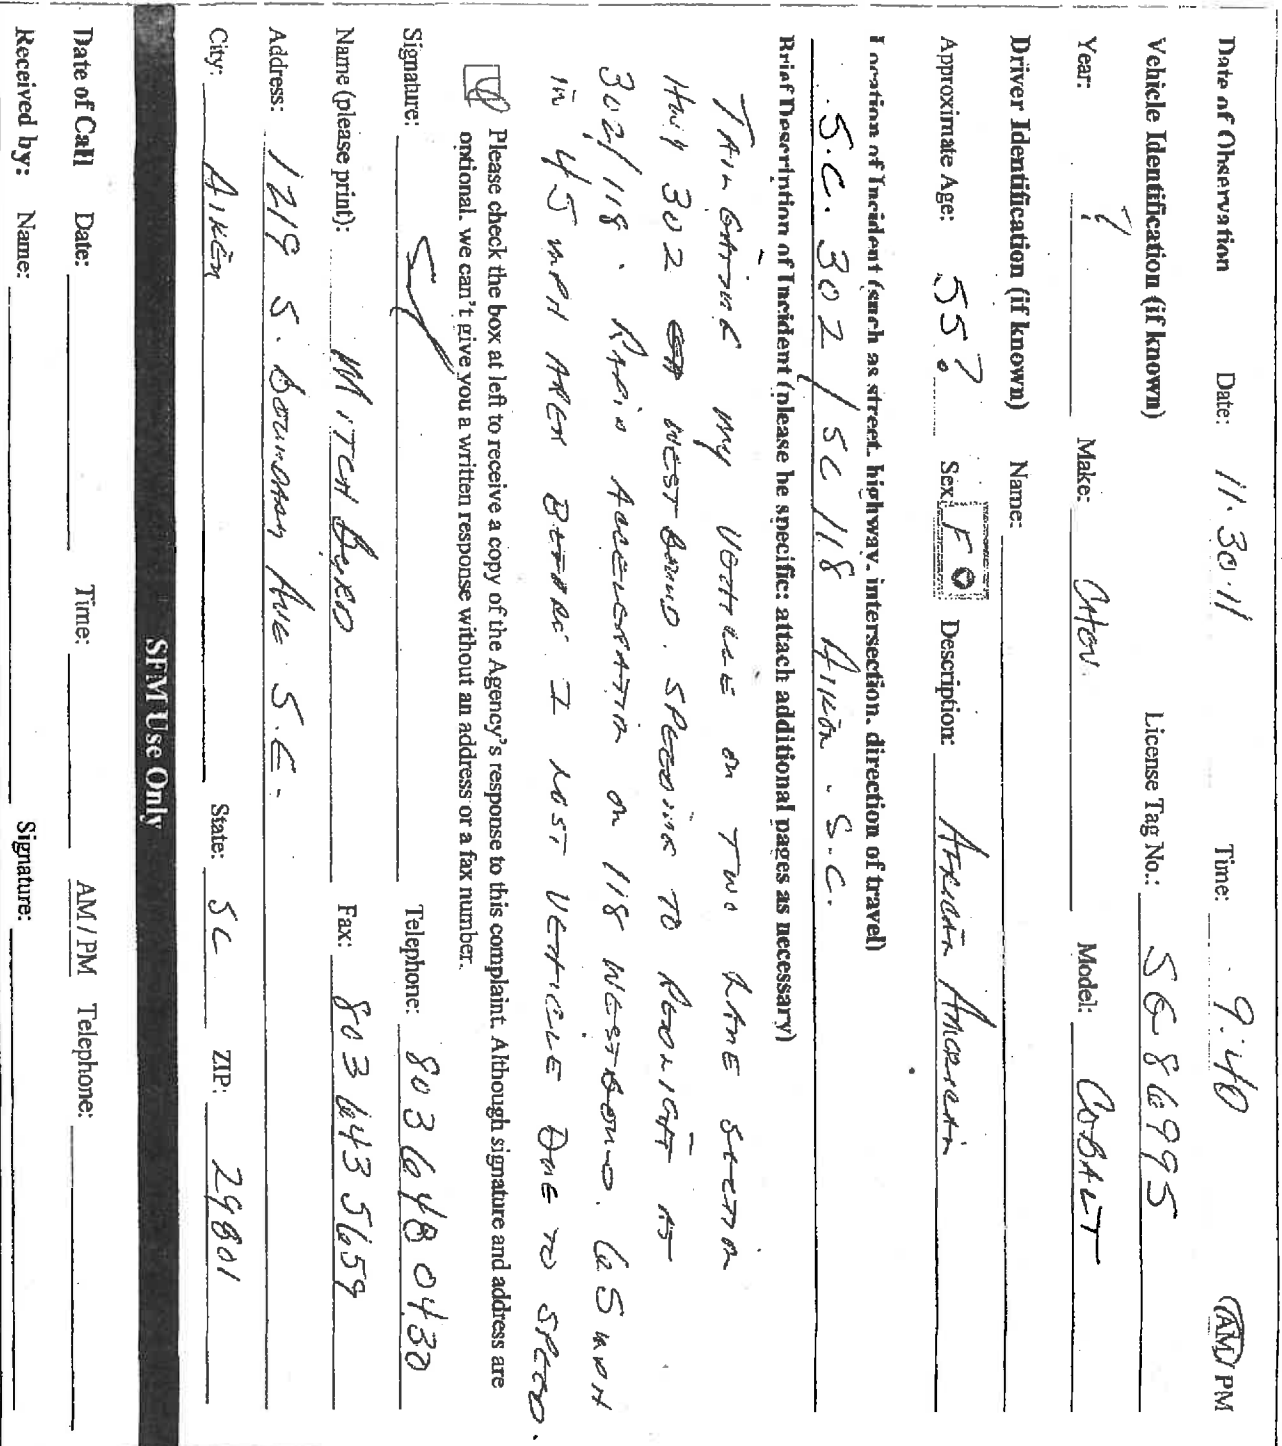 Date of Observation Date: 11.30.11 Time: 9:40 AM / PM
Vehicle Identification (if known) License Tag No.: SG 86995
Year: ? Make: CHEV. Model: COBALT
Driver Identification (if known) Name:
Approximate Age: 55? Sex: F Description: AFRICAN AMERICAN
Location of Incident (such as street, highway, intersection, direction of travel)
S.C. 302 / SC 118 AIKEN. S.C.
Brief Description of Incident (please be specific; attach additional pages as necessary)
TAILGATING MY VEHICLE ON TWO LANE SECTION
HWY 302 WESTBOUND. SPEEDING TO REDLIGHT AT
302/118. RAPID ACCELERATION ON 118 WESTBOUND. 65 MPH
IN 45 MPH AREA BEFORE I LOST VEHICLE DUE TO SPEED.
Please check the box at left to receive a copy of the Agency's response to this complaint. Although signature and address are
optional, we can't give you a written response without an address or a fax number.
Signature: Telephone: 803 648 0430
Name (please print): MITCH BYRD Fax: 803 643 5659
Address: 1219 S. BOUNDARY AVE S.E.
City: AIKEN State: SC ZIP: 29801
SFM Use Only
Date of Call Date: Time: AM / PM Telephone:
Received by: Name: Signature: